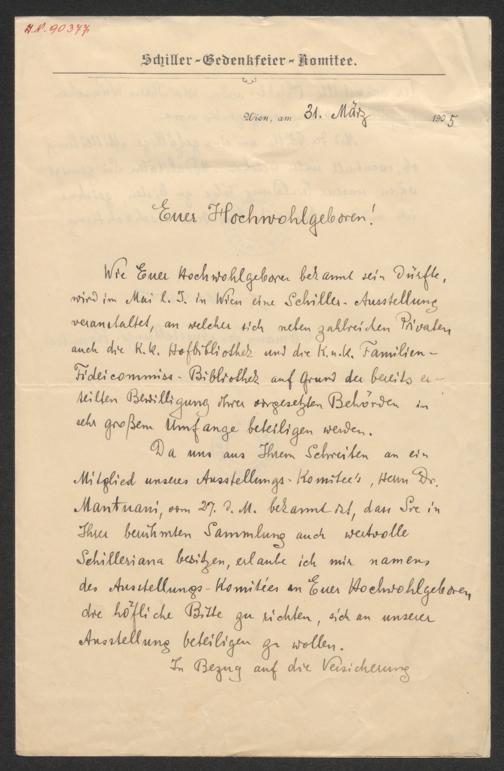 J.N. 90377
Schiller-Gedenkfeier-Komitee.
Wien, am 31. März 1905
Euer Hochwohlgeboren!
Wie Euer Hochwohlgeboren bekannt sein dürfte,
wird im Mai l. J. in Wien eine Schiller-Ausstellung
veranstaltet, an welcher sich neben zahlreichen Privaten
auch die k.k. Hofbibliothek und die K.u.k. Familien-
Fideicommiss-Bibliothek auf Grund der bereits er-
teilten Bewilligung ihrer vorgesetzten Behörden in
sehr großem Umfange beteiligen werden.
Da uns aus Ihrem Schreiben an ein
Mitglied unseres Ausstellungs-Komitee's, Herrn Dr.
Mantuani, vom 27. d. M. bekannt ist, dass Sie in
Ihrer berühmten Sammlung auch wertvolle
Schilleriana besitzen, erlaube ich mir namens
des Ausstellungs-Komitées an Euer Hochwohlgeboren
die höfliche Bitte zu richten, sich an unserer
Ausstellung beteiligen zu wollen.
In Bezug auf die Versicherung